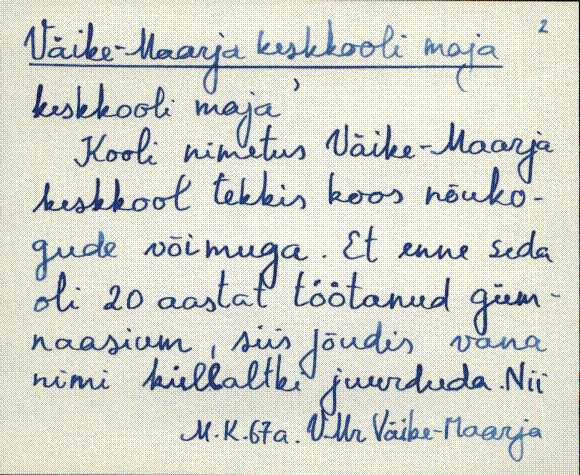 2
Väike-Maarja keskkooli maja
keskkooli maja
Kooli nimetus Väike-Maarja
keskkool tekkis koos nõuko-
gude võimuga. Et enne seda
oli 20 aastat töötanud güm-
naasium, siis jõudis vana
nimi küllaltki juurduda. Nii
M.K. 67a. V-Mr Väike-Maarja